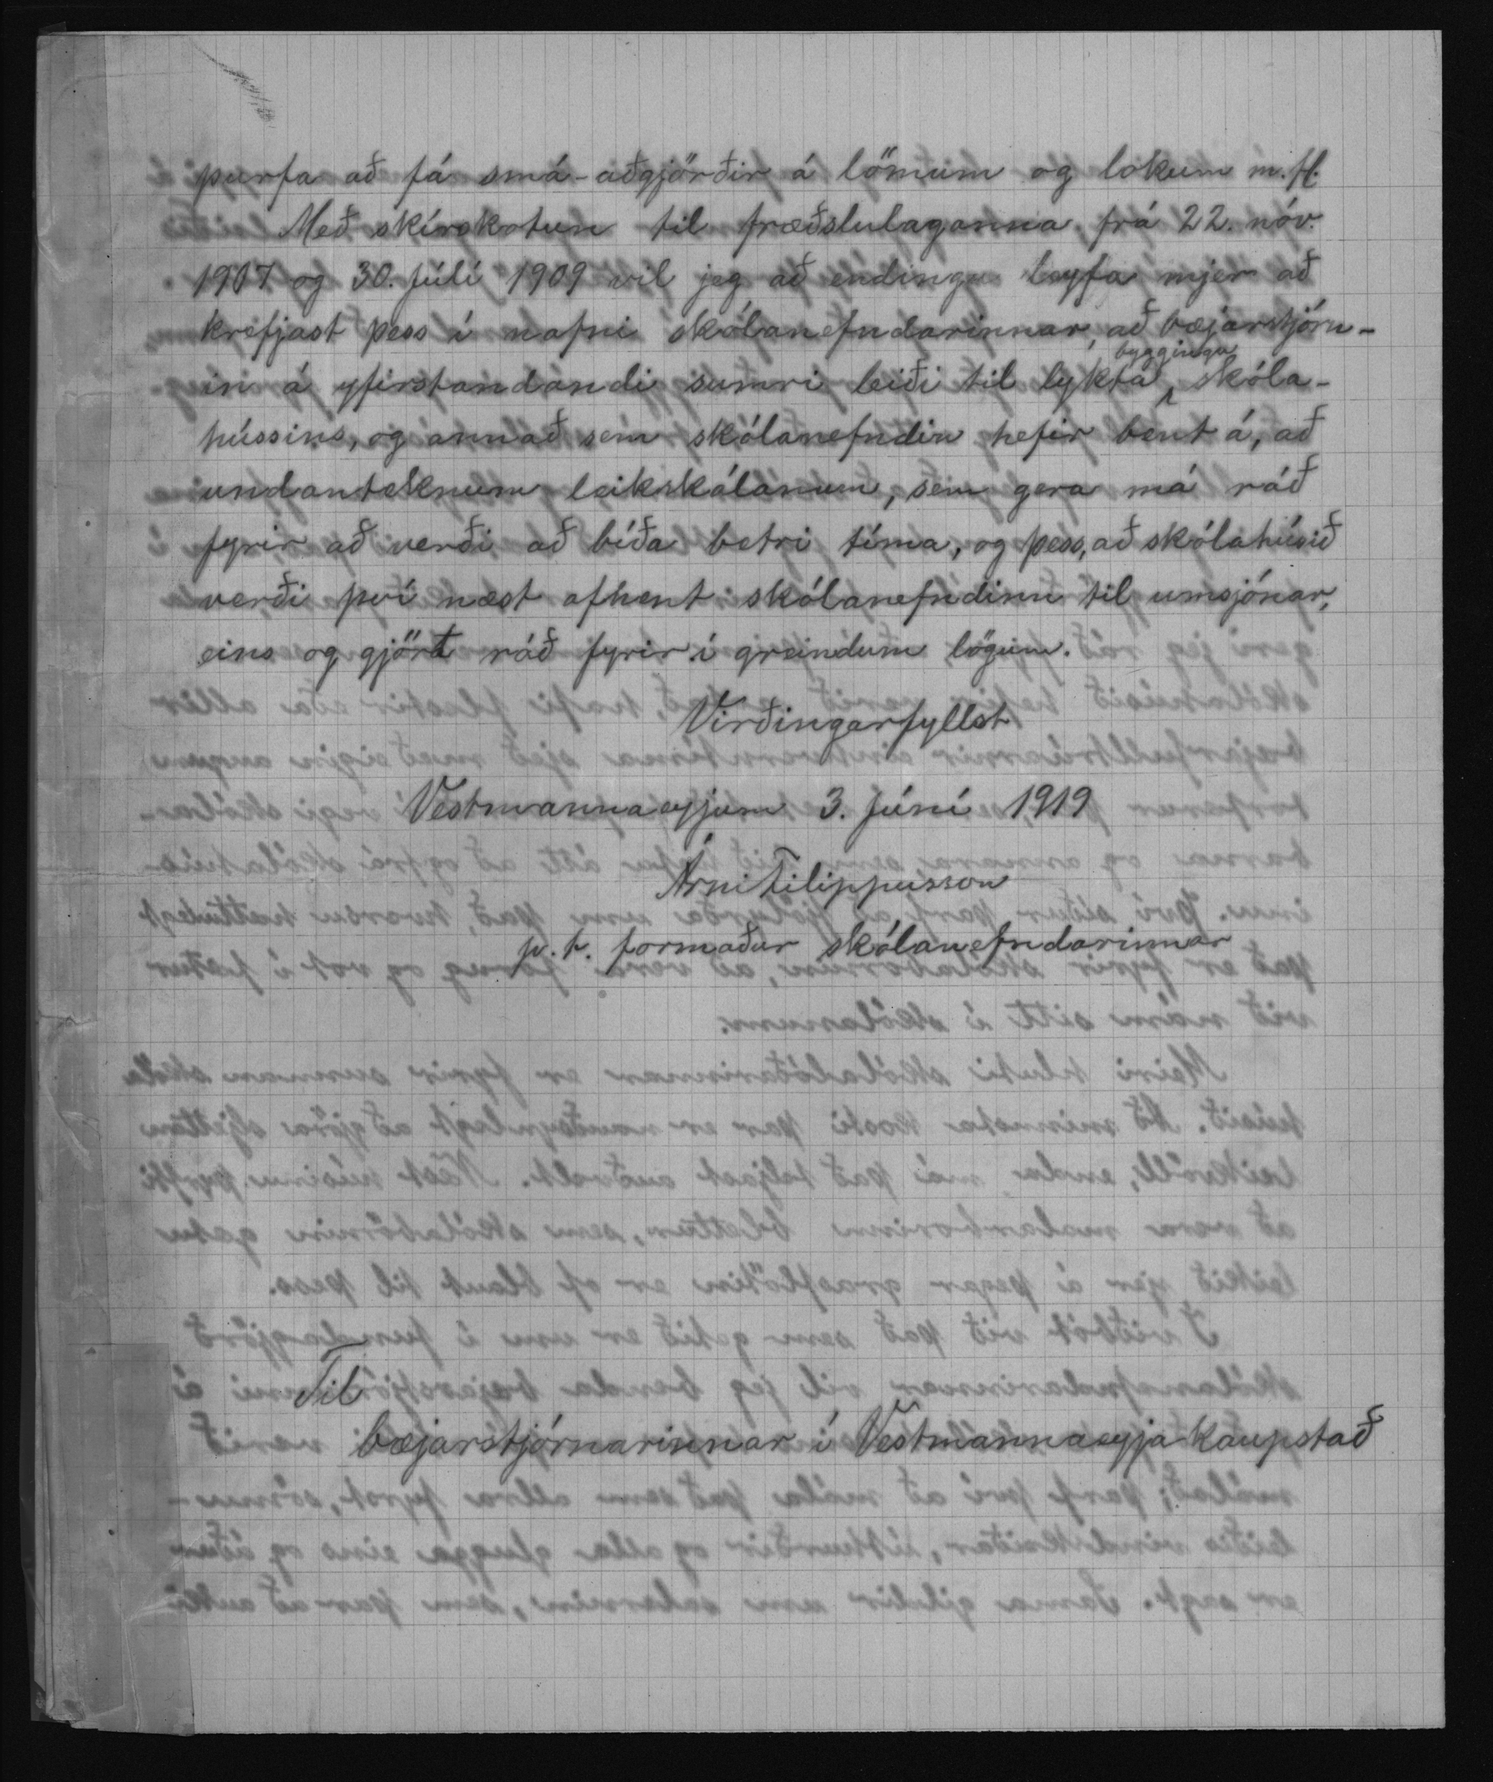 þurfa að fá smá-aðgjörðir á lömum og lokum m. fl.
Með skírskotun til fræðslulaganna frá 22. nóv.
1907 og 30. Júlí 1909 vil jeg að endingu leyfa mjer að
krefjast þess í nafni skólanefndarinnar, að bæjarstjórn-
in á yfirstandandi sumri leiði til lykta byggingu skóla-
hússins, og annað sem skólanefndin hefir bent á, að
undanteknum leikskálanum, sem gera má ráð
fyrir að verði að bíða betri tíma, og þess, að skólahúsið
verði því næst afhent skólanefndinni til umsjónar,
eins og gjört ráð fyrir í greindum lögum.
Virðingarfyllst
Vestmannaeyjum 3. Júní 1919
Árni Filippusson
p. t. formaður skólanefndarinnar
Til
bæjarstjórnarinnar í Vestmannaeyja kaupstað